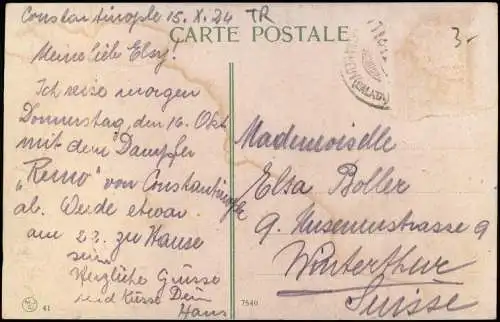 Constantinople 15. X. 24 TR
CARTE POSTALE
3-
Meine lieb Elsy!
Ich reise morgen
Donnerstag, den 16. Okt
mit dem Dampfer
„Remo" von Constantinople
ab. Werde etwa
am 23. zu Hause
sein
Herzliche Grüsse
und Küsse Dein
Hans
Mademoiselle
Elsa Boller
9. Museumstrasse 9
Winterthur
Suisse
41
7540